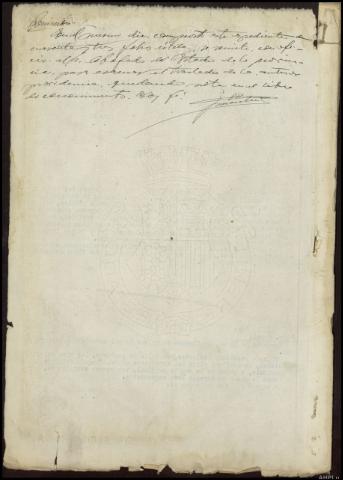 Remisión.
En el mismo dia, compuesto este expediente de
cuarenta y tres folios utiles, se remite con ofi-
cio al Sr. Abogado del Estado de la provin-
cia, para evacuar el traslado de la anterior
providencia, quedando nota en el libro
de conocimientos. Doy fé.
AHPLU